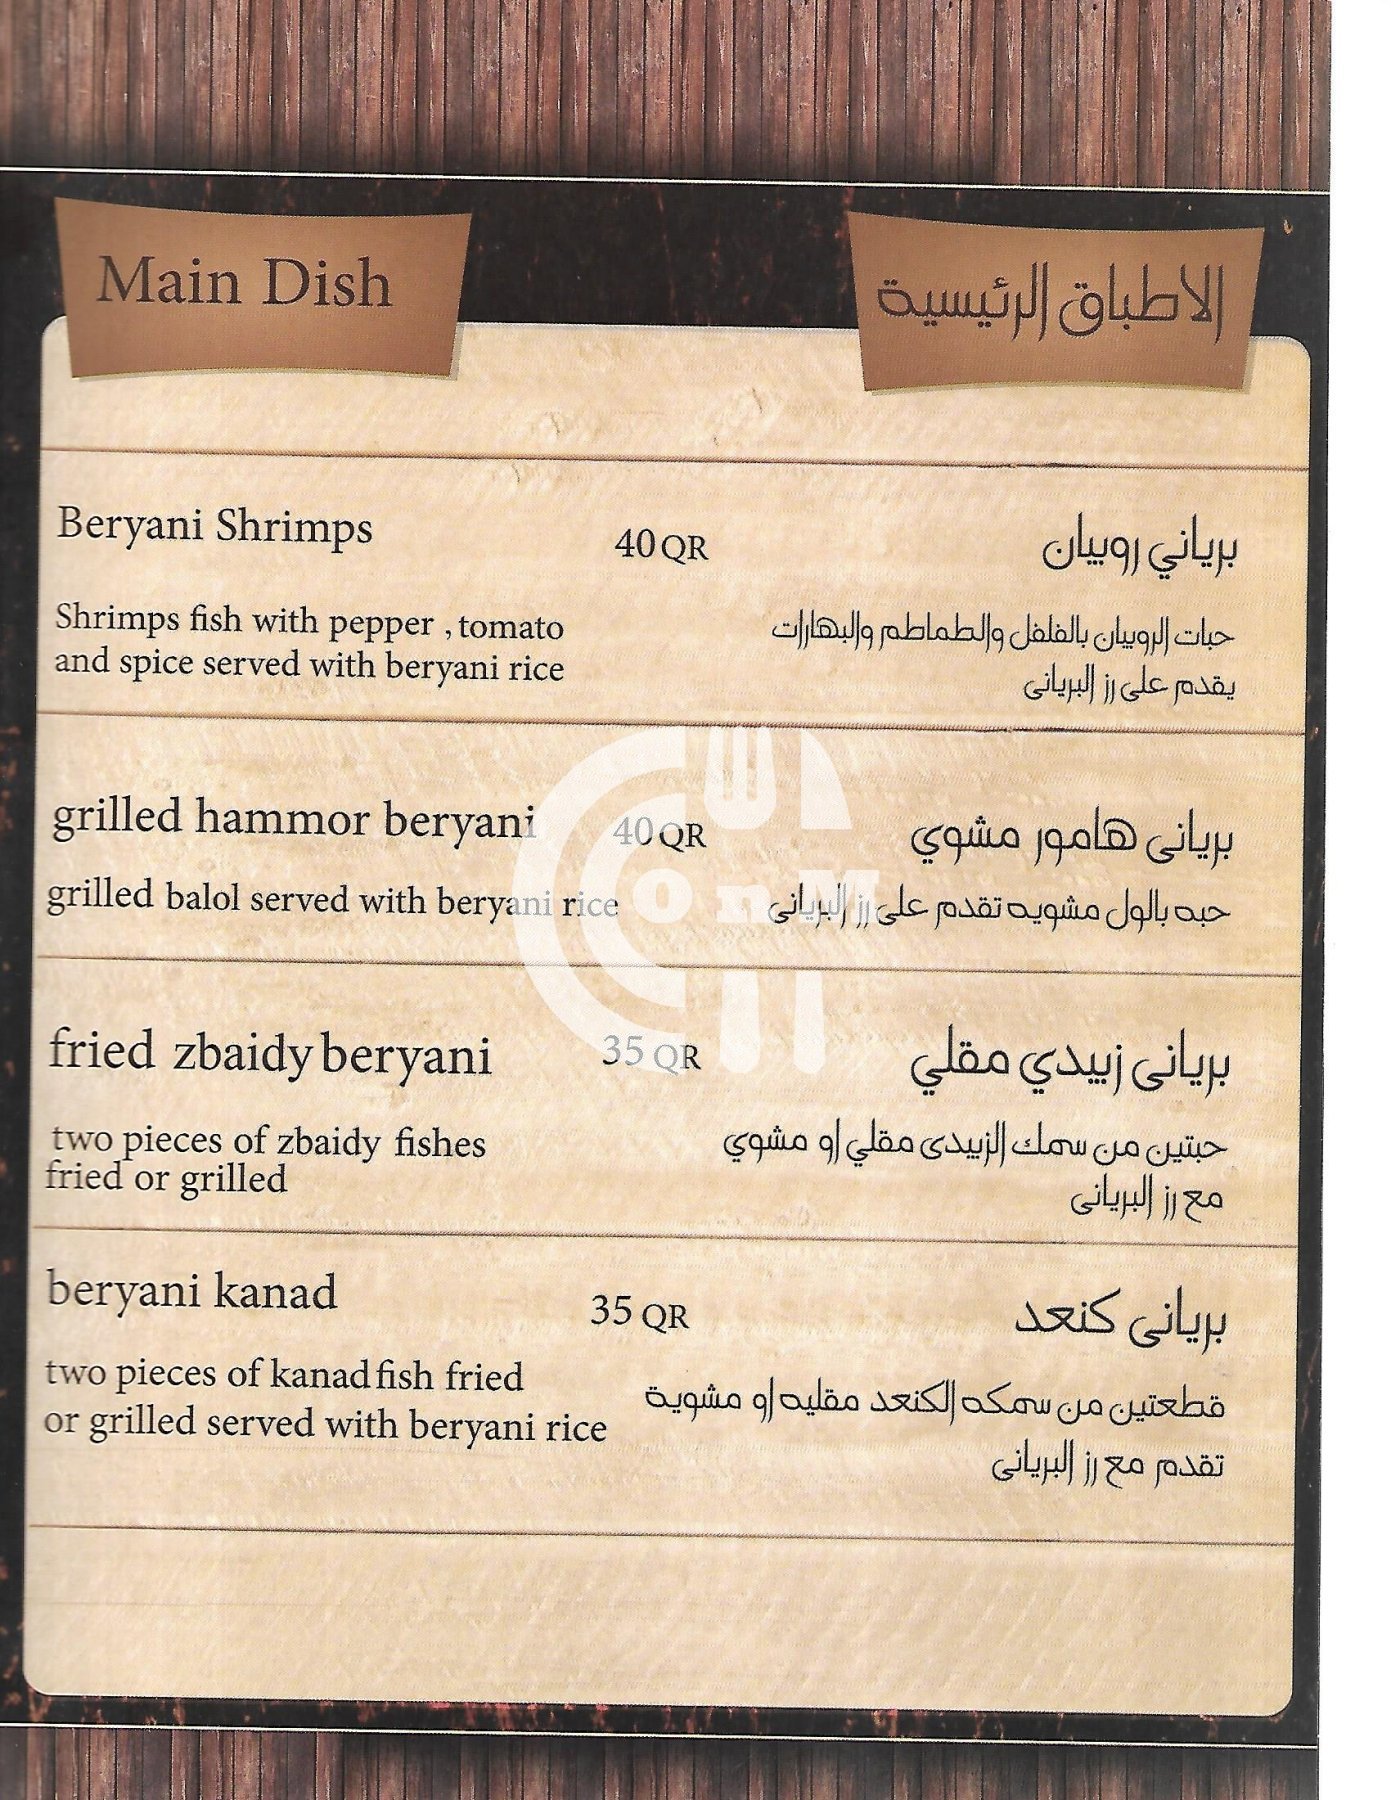 Main Dish
الاطباق الرئيسية
Beryani Shrimps
40 QR
برياني روبيان
Shrimps fish with pepper , tomato
and spice served with beryani rice
حبات الروبيان بالفلفل والطماطم والبهارات
يقدم على رز البريانى
grilled hammor beryani
40 QR
بريانى هامور مشوي
grilled balol served with beryani rice
حبه بالول مشويه تقدم على رز البريانى
fried zbaidy beryani
35 QR
بريانى زبيدي مقلي
two pieces of zbaidy fishes
fried or grilled
حبتين من سمك الزبيدى مقلي او مشوي
مع رز البريانى
beryani kanad
35 QR
بريانى كنعد
two pieces of kanad fish fried
or grilled served with beryani rice
قطعتين من سمكه الكنعد مقليه او مشوية
تقدم مع رز البريانى